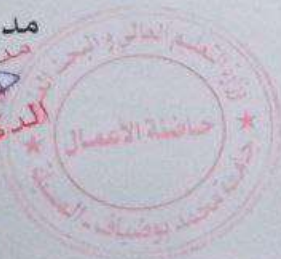 مد
مد
الد
وزارة التعليم العالي و البحث العلمي
حاضنة الأعمال
جامعة محمد بوضياف - المسيلة